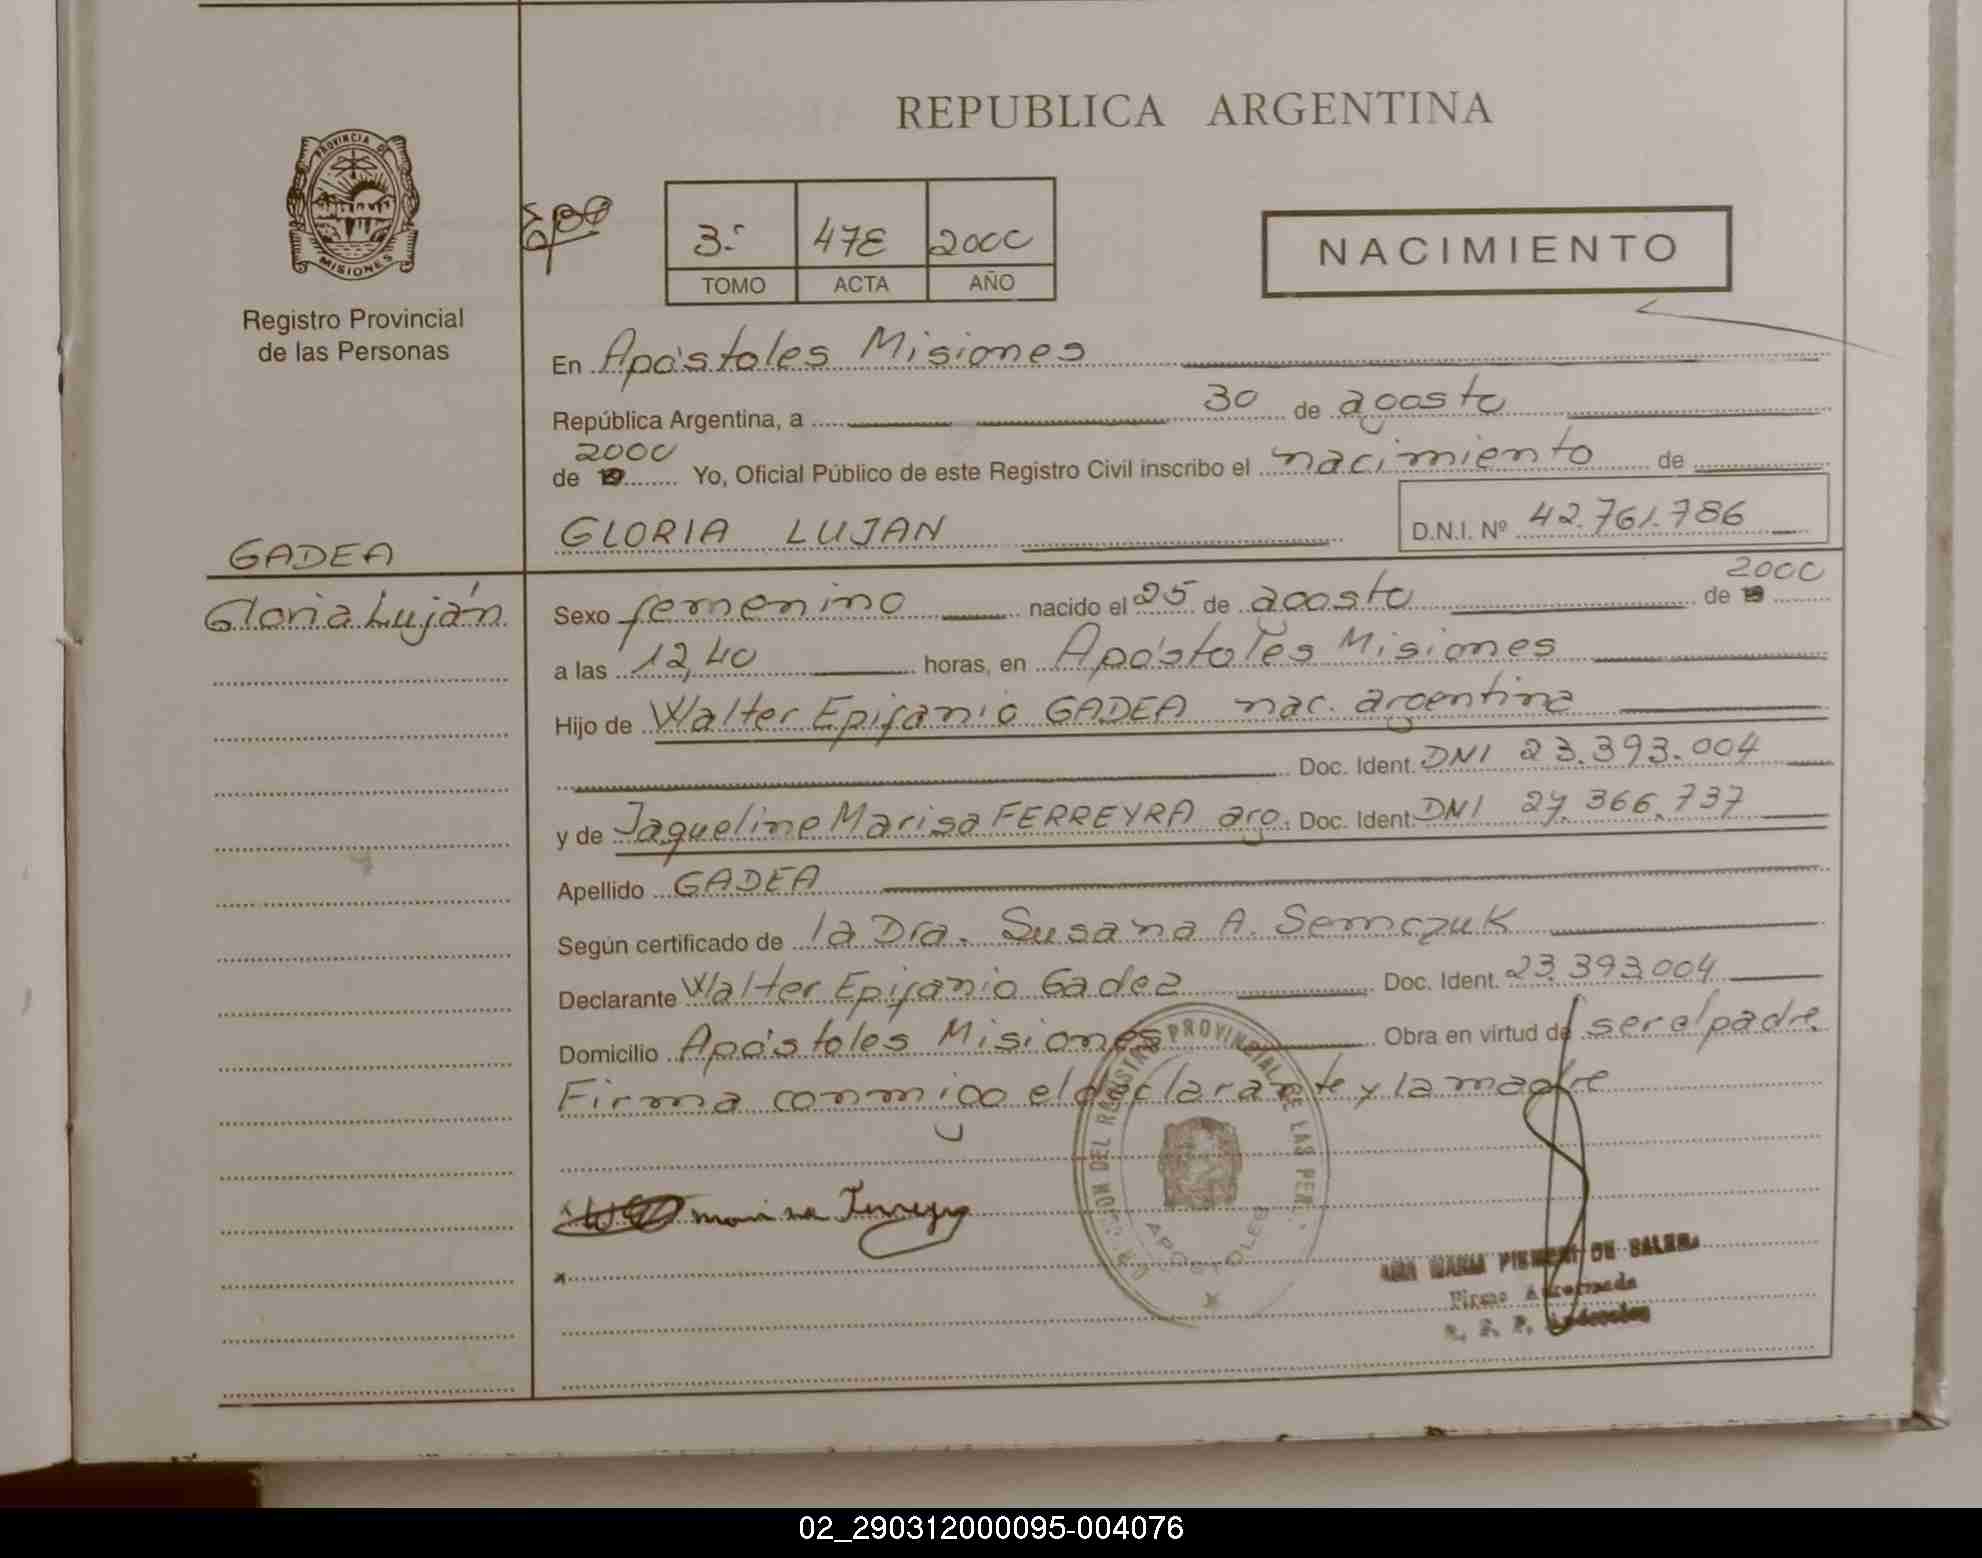 REPUBLICA ARGENTINA
PROVINCIA DE
MISIONES
Registro Provincial
de las Personas
3.- 478 2000
TOMO ACTA AÑO
NACIMIENTO
En Apóstoles Misiones
República Argentina, a 30 de agosto
2000
de 19 Yo, Oficial Público de este Registro Civil inscribo el nacimiento de
GLORIA LUJAN D.N.I. Nº 42.761.786
GADEA
Gloria Luján
2000
Sexo femenino nacido el 25 de agosto de 19
a las 12,40 horas, en Apóstoles Misiones
Hijo de Walter Epifanio GADEA nac. argentina
Doc. Ident. DNI 23.393.004
y de Jaqueline Marisa FERREYRA arg. Doc. Ident. DNI 27.366.737
Apellido GADEA
Según certificado de la Dra. Susana A. Semczuk
Declarante Walter Epifanio Gadea Doc. Ident. 23.393.004
Domicilio Apóstoles Misiones Obra en virtud de ser el padre
Firma conmigo el declarante y la madre
DEL REGISTRO PROVINCIAL DE LAS PER.
APOSTOLES
marisa Ferreyra
x
MARIA DE
Firma Autorizada
02_290312000095-004076